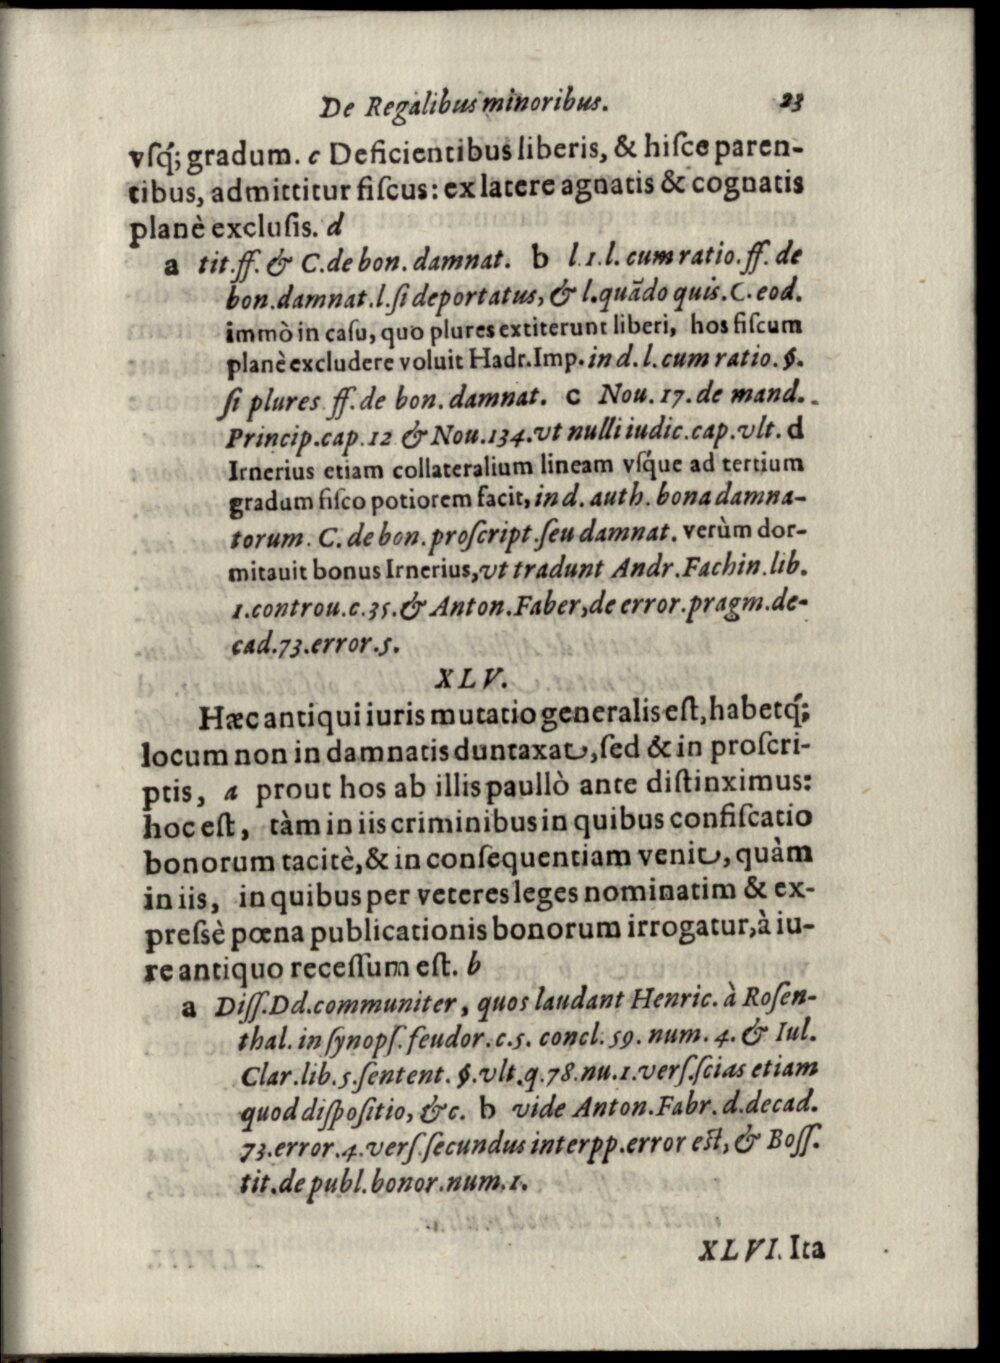 De Regalibus minoribus. 23
vſq́; gradum. c Deficientibus liberis, & hiſce paren-
tibus, admittitur fiſcus: ex latere agnatis & cognatis
planè excluſis. d
a tit. ff. & C. de bon. damnat. b l. 1. l. cum ratio. ff. de
bon. damnat. l. ſi deportatus, & l. quãdo quis. C. eod.
immò in caſu, quo plures extiterunt liberi, hos fiſcum
planè excludere voluit Hadr. Imp. in d. l. cum ratio. §.
ſi plures ff. de bon. damnat. c Nou. 17. de mand.
Princip. cap. 12 & Nou. 134. vt nulli iudic. cap. vlt. d
Irnerius etiam collateralium lineam vſque ad tertium
gradum fiſco potiorem facit, in d. auth. bona damna-
torum. C. de bon. proſcript. ſeu damnat. verùm dor-
mitauit bonus Irnerius, vt tradunt Andr. Fachin. lib.
1. controu. c. 35. & Anton. Faber, de error. pragm. de-
cad. 73. error. 5.
XLV.
Hæc antiqui iuris mutatio generalis eſt, habetq́;
locum non in damnatis duntaxat, ſed & in proſcri-
ptis, a prout hos ab illis paullò ante diſtinximus:
hoc eſt, tàm in iis criminibus in quibus confiſcatio
bonorum tacitè, & in conſequentiam venit, quàm
in iis, in quibus per veteres leges nominatim & ex-
preſsè pœna publicationis bonorum irrogatur, à iu-
re antiquo receſſum eſt. b
a Diſſ. Dd. communiter, quos laudant Henric. à Roſen-
thal. in ſynopſ. feudor. c. 5. concl. 59. num. 4. & Iul.
Clar. lib. 5. ſentent. §. vlt. q. 78. nu. 1. verſ. ſcias etiam
quod diſpoſitio, &c. b vide Anton. Fabr. d. decad.
73. error. 4. verſ. ſecundus interpp. error eſt, & Boſſ.
tit. de publ. bonor. num. 1.
XLVI. Ita